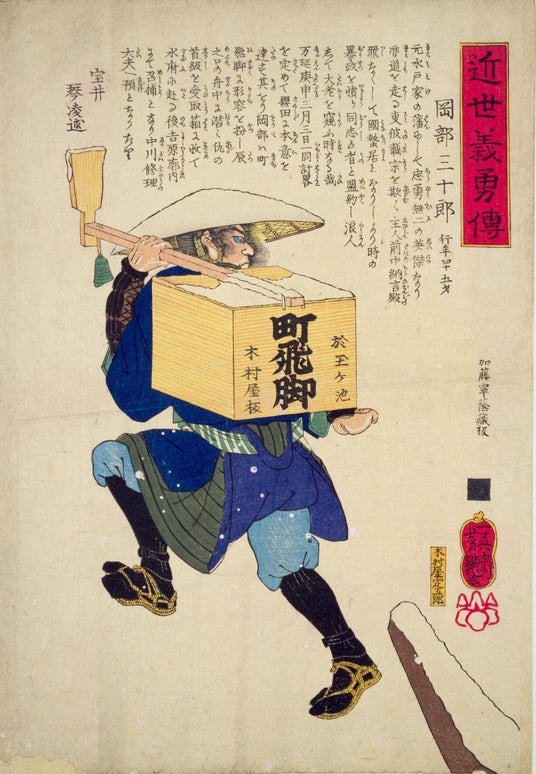 近世義勇傳
岡部三十郎
行年四十五才
元水戸家の藩中にして忠勇無二の英傑なり
亦道を走る東彼載宗を欺く主人前中納言殿
罪なくして國蟄居となりしより時の
暴政を憤り同志の者と盟約し浪人
ゑて大老を窺ふ時なる哉
万延庚申三月三日一同計畧
を定めて櫻田に本意を
達せ其をり岡部ハ町
飛脚の形容に扮し辰
之口の舟中に潜ミ仇の
首級を受取箱に収て
水府に赴る後吉原廓内
にて召捕となり中川修理
大夫へ預となりたり
宝井
琴凌述
於玉ケ池
町飛脚
木村屋板
加藤
藏板